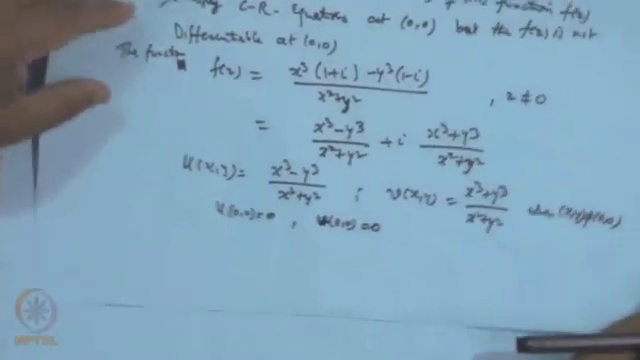 C-R- Equations at (0,0) but the f(z) is not
Differentiable at (0,0)
The function f(z) = x³(1+i) - y³(1-i) / x²+y² , z ≠ 0
= x³-y³ / x²+y² + i x³+y³ / x²+y²
u(x,y) = x³-y³ / x²+y² ; v(x,y) = x³+y³ / x²+y² when (x,y)≠(0,0)
u(0,0)=0 , v(0,0)=0
NPTEL